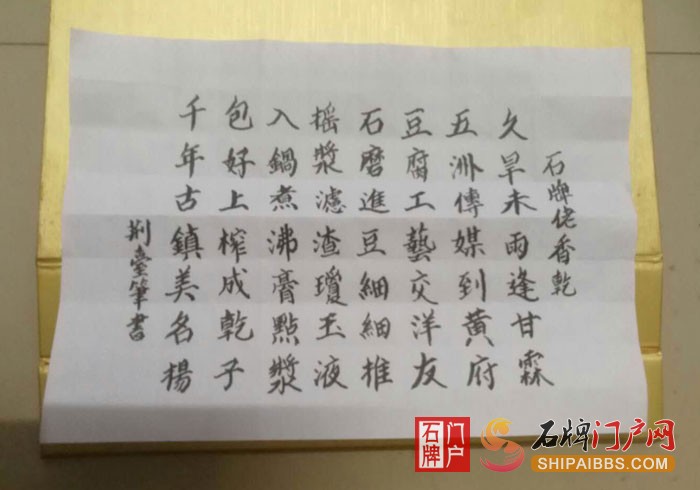 石牌佬香乾
久旱未雨逢甘霖
五洲傳媒到黄府
豆腐工藝交洋友
石磨進豆細細推
摇漿濾渣瓊玉液
入鍋煮沸膏點漿
包好上榨成乾子
千年古鎮美名楊
荆臺筆書
石牌
门户
石牌门户网
SHIPAIBBS.COM